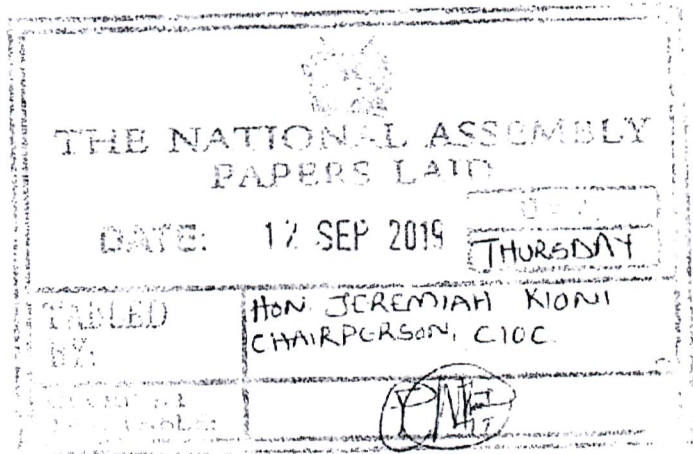 THE NATIONAL ASSEMBLY
PAPERS LAID
DATE: 12 SEP 2019
DAY
THURSDAY
TABLED BY:
HON. JEREMIAH KIONI
CHAIRPERSON, CIOC